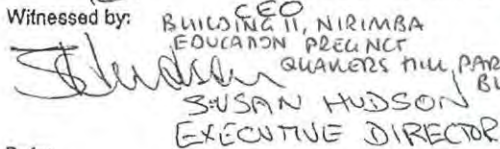 CEO
Witnessed by: BUILDING 11, NIRIMBA
EDUCATION PRECINCT
QUAKERS HILL, PAR
SUSAN HUDSON
EXECUTIVE DIRECTOR